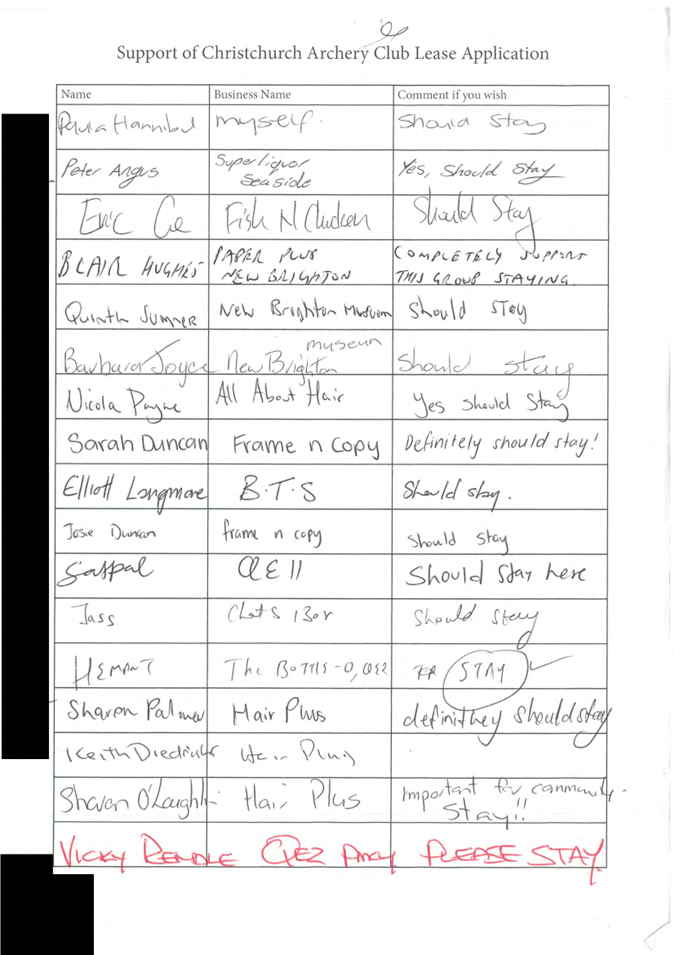 Support of Christchurch Archery Club Lease Application
Name Business Name Comment if you wish
Hannibal myself. Should Stay
Peter Angus Superliquor Seaside Yes, Should Stay
Eric Fish N Chicken Should Stay
BLAIR HUGHES PAPER PLUS NEW BRIGHTON COMPLETELY SUPPORT THIS GROUP STAYING.
Sumner New Brighton Museum Should Stay
Barbara Joyce New Brighton museum Should stay
Nicola Payne All About Hair Yes Should Stay
Sarah Duncan Frame n Copy Definitely should stay!
Elliott Longmore B.T.S Should stay.
Josie Duncan frame n copy Should Stay
Satpal QE II Should Stay here
Jass Should Stay
HEMANT The BOTTLE-O, STAY
Sharon Palmer Hair Plus definitley should stay
Keith
Sharon O'Laughlin Hair Plus Important for community. Stay!!
VICKY RENDLE PLEASE STAY.